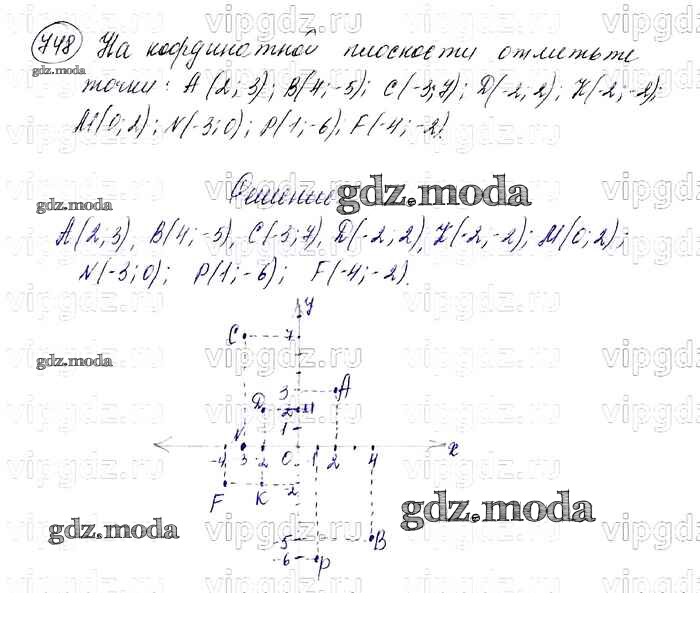 748 На координатной плоскости отметьте
точки: А(2; 3); В(4; -5); С(-3; 7); Д(-2; 2); К(-2; -2);
М(0; 2); N(-3; 0); Р(1; -6), F(-4; -2).
Решение
А(2, 3), В(4; -5), С(-3; 7), Д(-2, 2), К(-2, -2); М(0; 2);
N(-3; 0); Р(1; -6); F(-4; -2).
y
C 7
3 A
Д 2 М
1
N
-4 3 -2 0 1 2 4 x
F K -2
-5 B
-6 P
gdz.moda
gdz.moda
gdz.moda
gdz.moda
gdz.moda
gdz.moda
vipgdz.ru